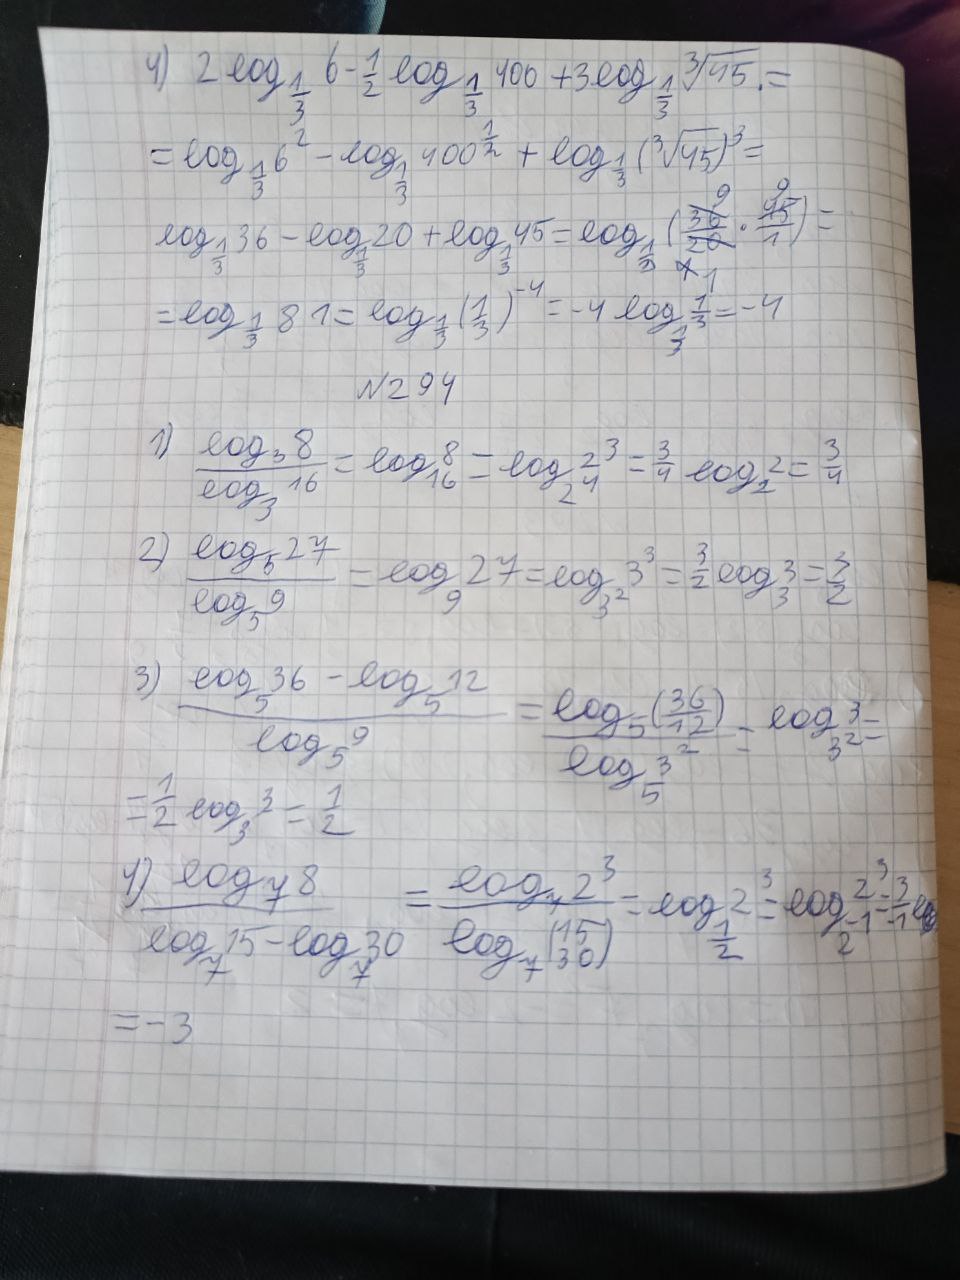 4) 2 log_{1/3} 6 - 1/2 log_{1/3} 400 + 3 log_{1/3} ∛45 =
= log_{1/3} 6^2 - log_{1/3} 400^{1/2} + log_{1/3} (∛45)^3 =
log_{1/3} 36 - log_{1/3} 20 + log_{1/3} 45 = log_{1/3} (36/20 · 45/1) =
= log_{1/3} 81 = log_{1/3} (1/3)^{-4} = -4 log_{1/3} 1/3 = -4
№294
1) log_3 8 / log_3 16 = log_16 8 = log_{2^4} 2^3 = 3/4 log_2 2 = 3/4
2) log_5 27 / log_5 9 = log_9 27 = log_{3^2} 3^3 = 3/2 log_3 3 = 3/2
3) (log_5 36 - log_5 12) / log_5 9 = log_5 (36/12) / log_5 3^2 = log_{3^2} 3 =
= 1/2 log_3 3 = 1/2
4) log_7 8 / (log_7 15 - log_7 30) = log_7 2^3 / log_7 (15/30) = log_{1/2} 2^3 = log_{2^{-1}} 2^3 = 3/-1
= -3